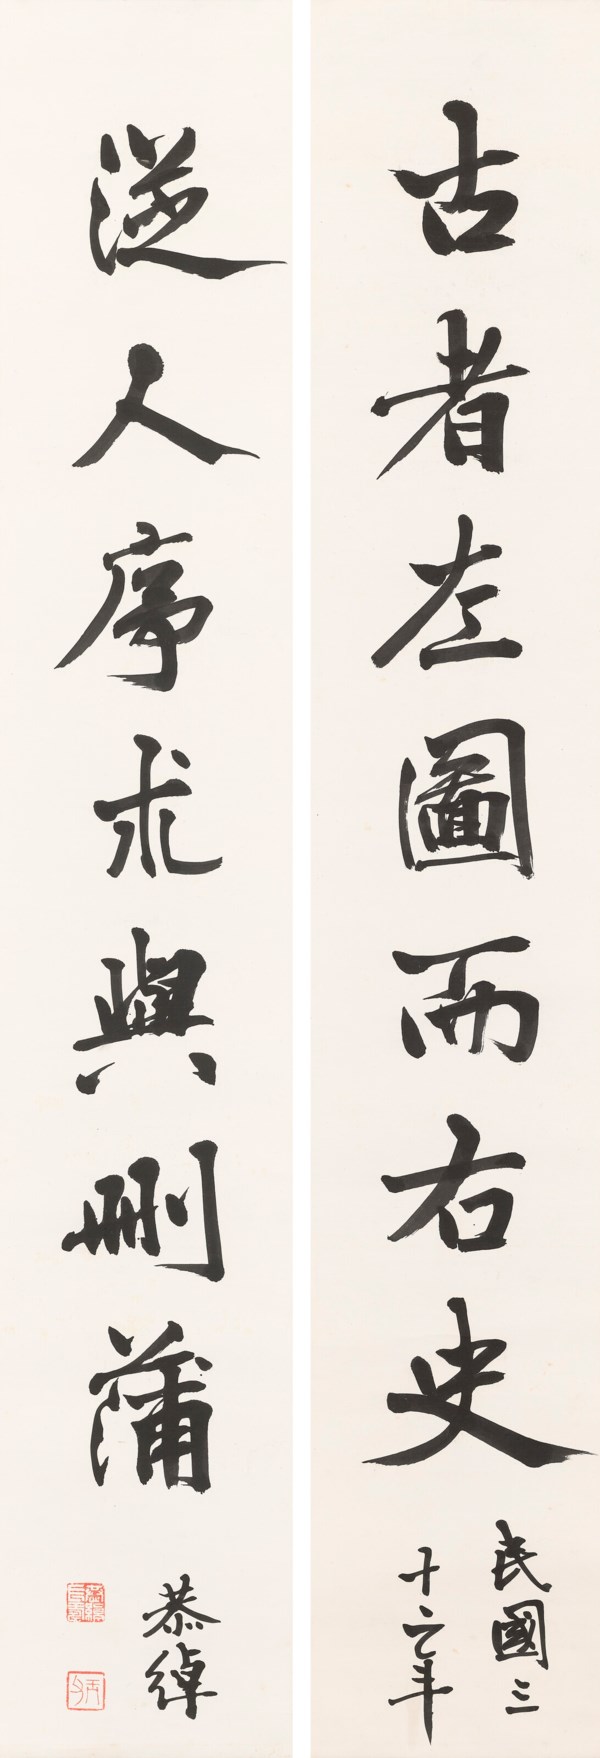 古者左圖而右史
民國三
十年
從人序朮與刪蒲
恭綽